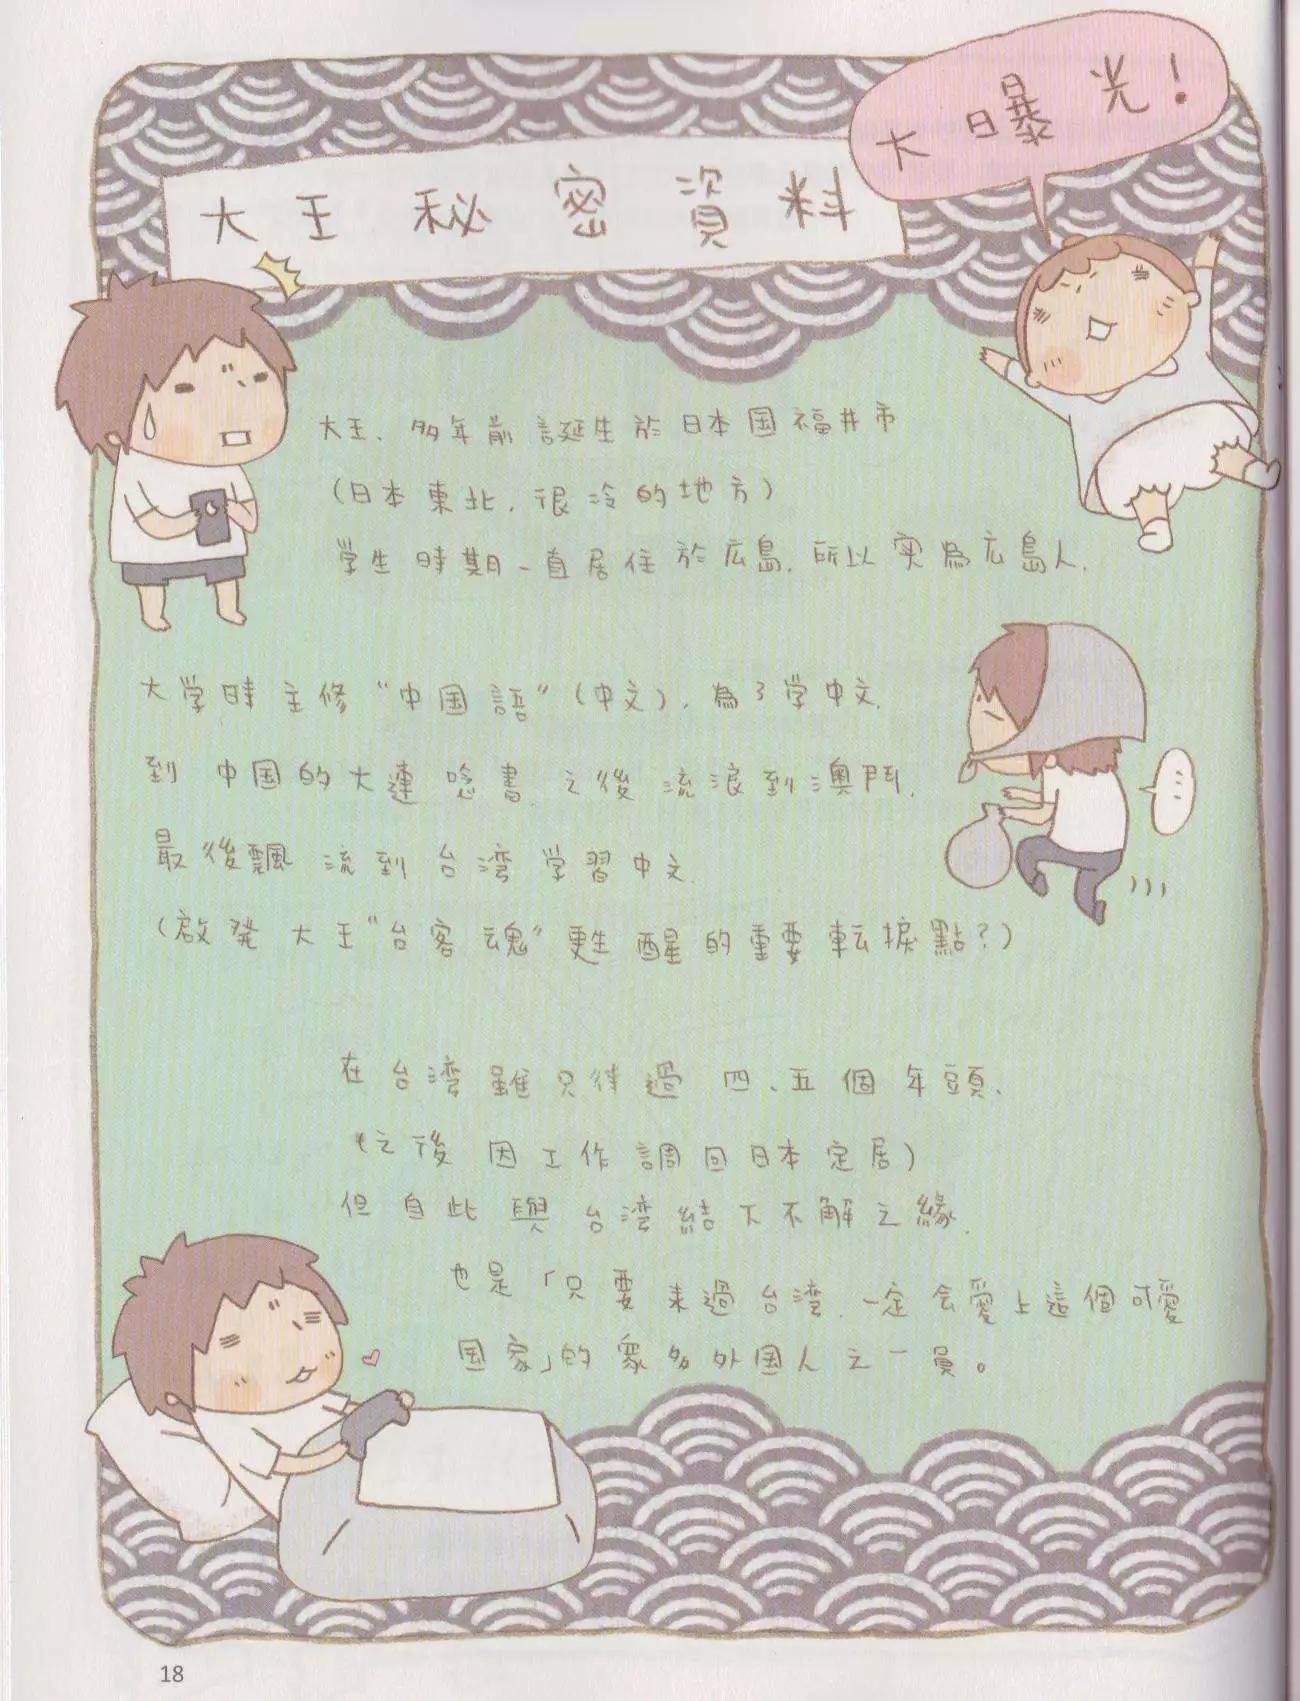 大曝光!
大王秘密資料
大王、多年前誕生於日本国福井市
(日本東北,很冷的地方)
学生時期一直居住於広島,所以実為広島人.
大学時主修“中国語”(中文),為了学中文,
到中国的大連唸書,之後流浪到澳門,
最後飄流到台湾学習中文.
(啟発大王“台客魂”甦醒的重要転捩點?)
在台湾雖只待過四、五個年頭,
(之後因工作調回日本定居)
但自此與台湾結下不解之緣,
也是「只要来過台湾,一定会愛上這個可愛
国家」的眾多外国人之一員。
18